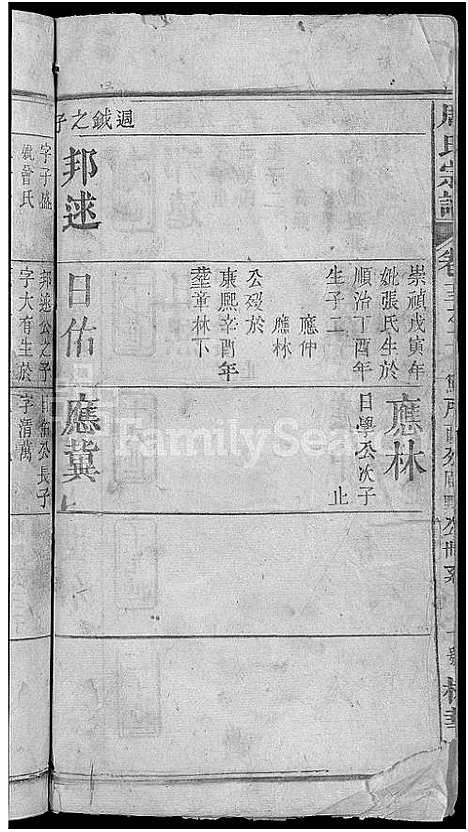 周氏宗譜
卷三
崇禎戊寅年
妣張氏生於
順治丁酉年
生子二
應仲
應林
公歿於
康熙辛酉年
塟童林下
應林
日學公次子
止
週鉞之子
邦逑
日佑
應冀
字子盛
邦逑公之子
字大有生於
日佑公長子
字清萬
FamilySearch